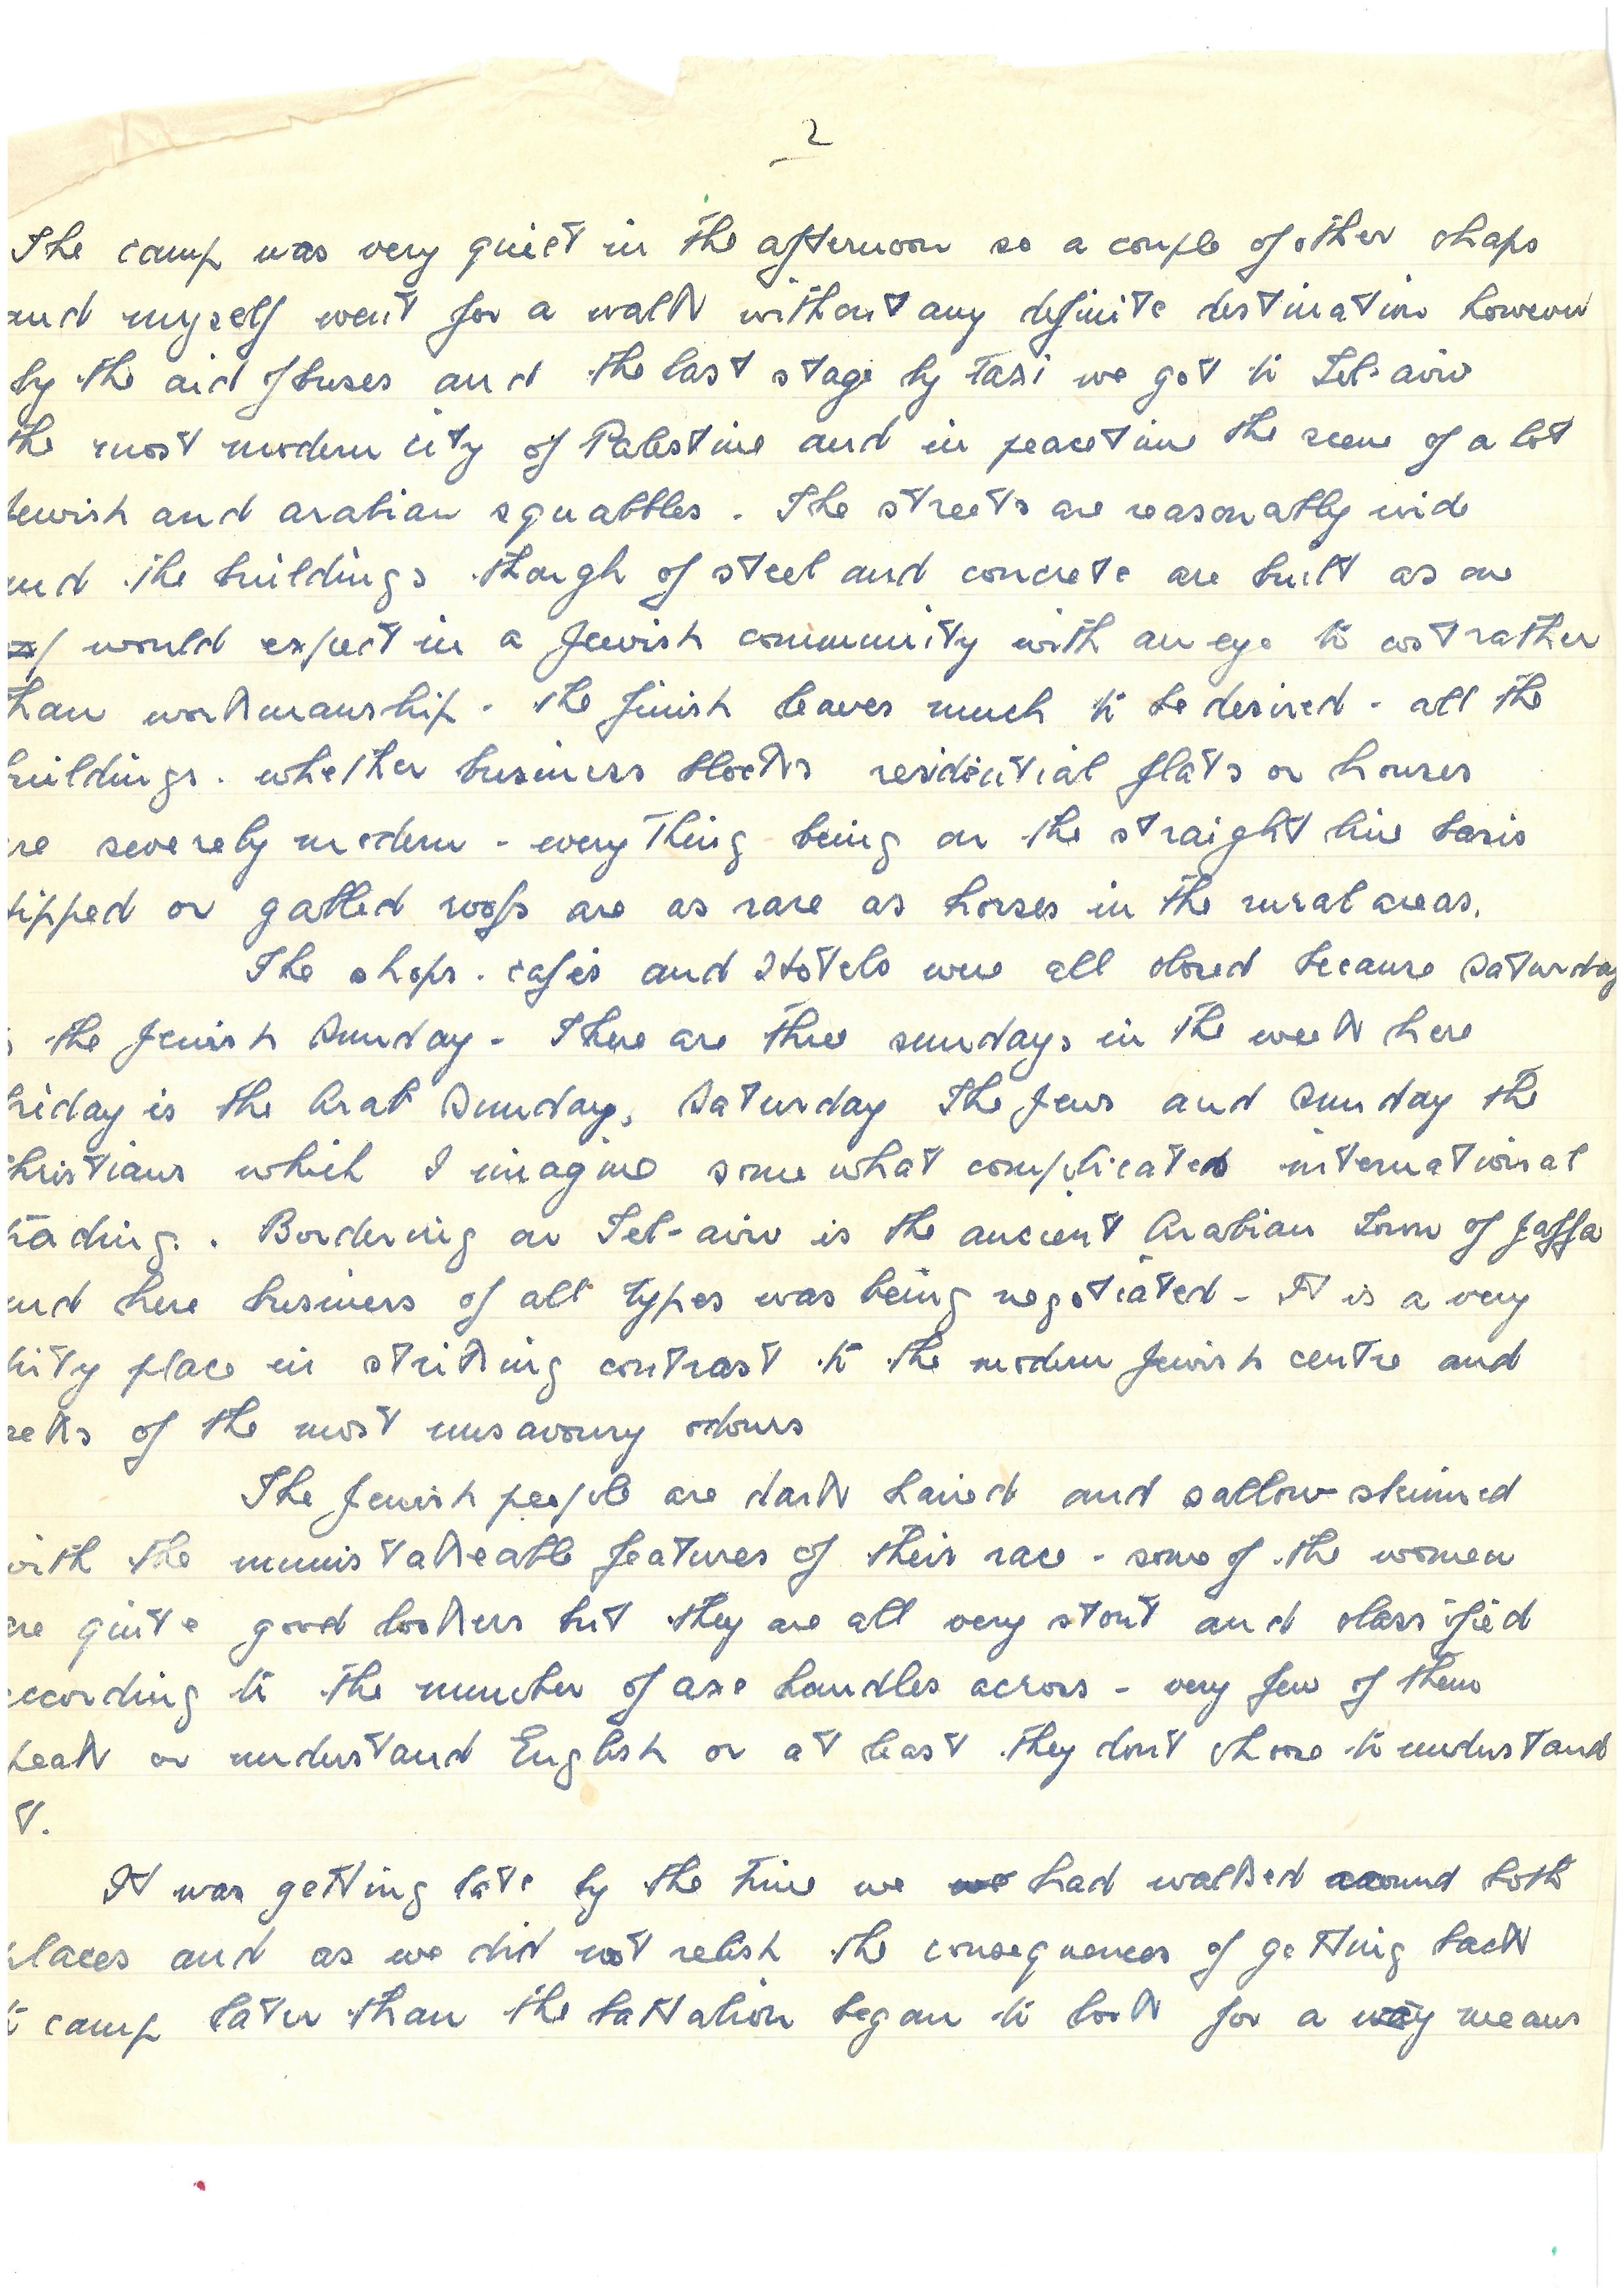 2
The camp was very quiet in the afternoon so a couple of other chaps
and myself went for a walk without any definite destination however
by the aid of buses and the last stage by taxi we got to Tel-aviv
the most modern city of Palestine and in peacetime the scene of a lot
Jewish and arabian squabbles. The streets are reasonably wide
and the buildings though of steel and concrete are built as one
would expect in a Jewish community with an eye to cost rather
than workmanship. the finish leaves much to be desired - all the
buildings. whether business blocks residential flats or houses
are severely modern - everything being on the straight line basis
hipped or gabled roofs are as rare as horses in the rural areas.
The shops. cafes and Hotels were all closed because Saturday
is the Jewish Sunday. There are three sundays in the week here
friday is the Arab Sunday, Saturday the Jews and Sunday the
christians which I imagine some what complicates international
trading. Bordering on Tel-aviv is the ancient Arabian Town of Jaffa
and here business of all types was being negotiated - It is a very
dirty place in striking contrast to the modern Jewish centre and
reeks of the most unsavoury odours
The Jewish people are dark haired and sallow skinned
with the unmistakeable features of their race - some of the women
are quite good lookers but they are all very stout and classified
according to the number of axe handles across - very few of them
speak or understand English or at least they dont choose to understand
it.
It was getting late by the time we had walked around both
places and as we did not relish the consequences of getting back
to camp later than the battalion began to look for a way means